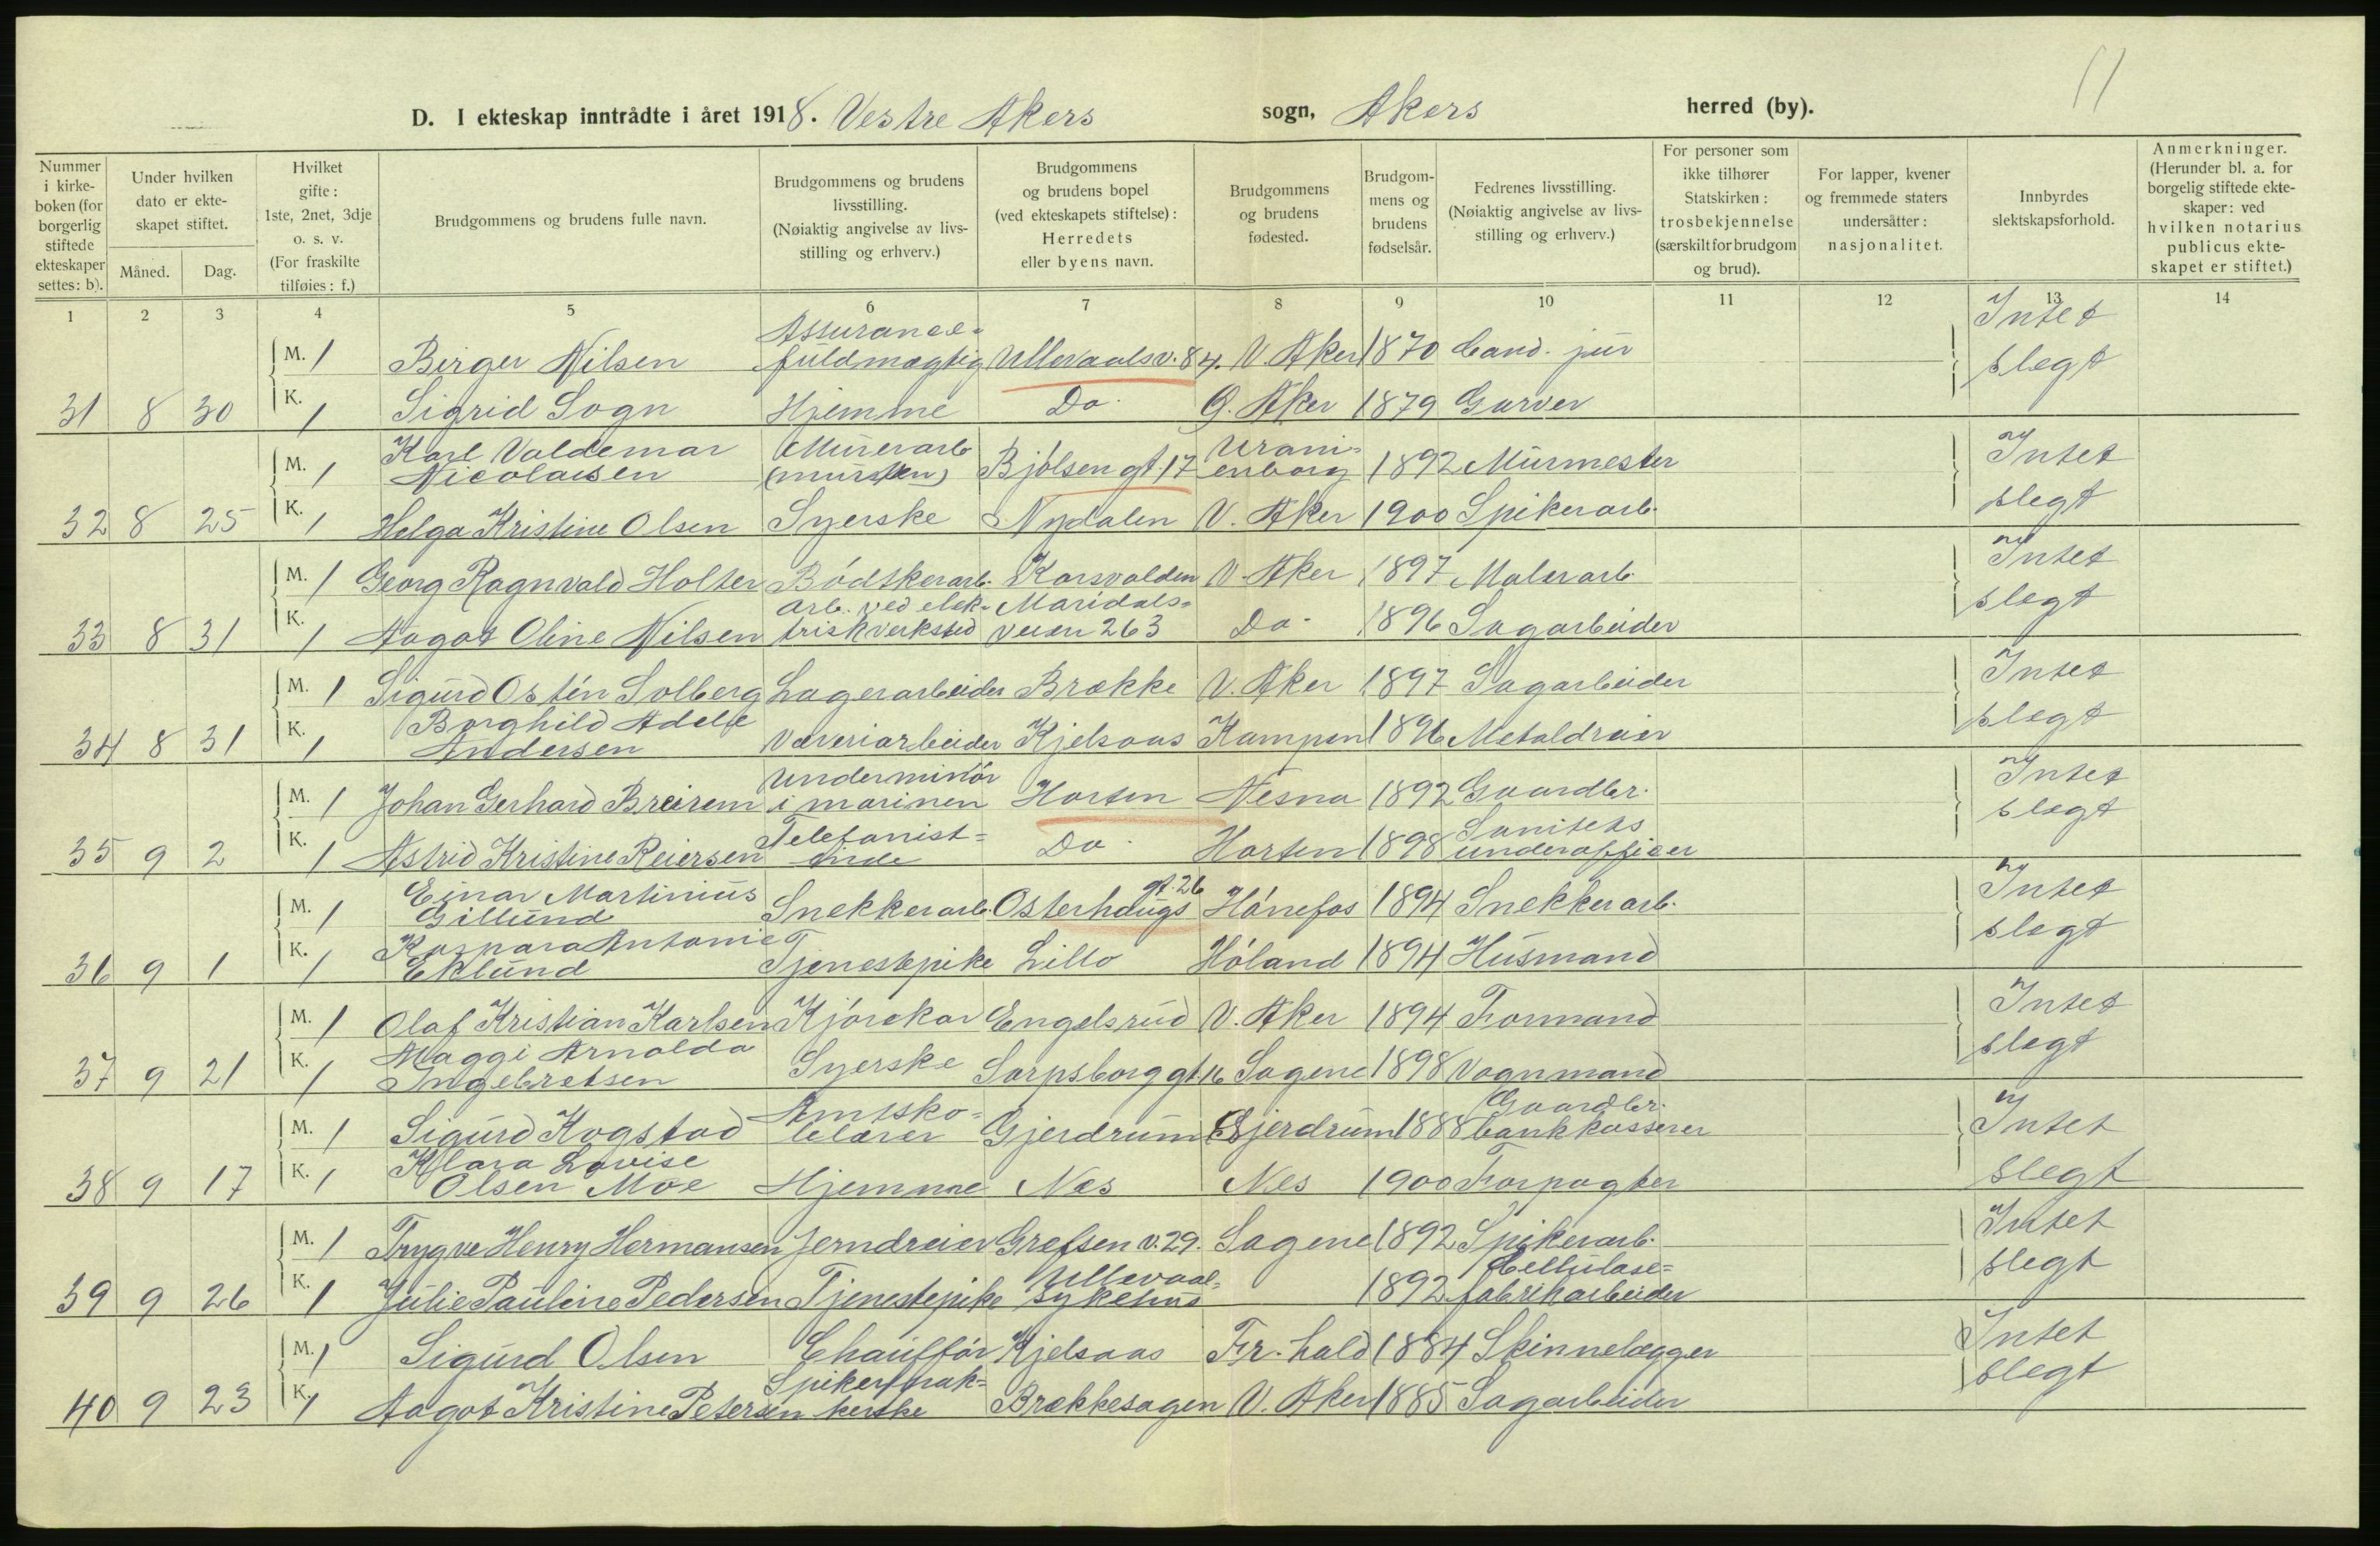 11
D. I ekteskap inntrådte i året 1918. Vestre Akers sogn, Akers herred (by).
Nummer i kirkeboken (for borgerlig stiftede ekteskaper settes: b).
Under hvilken dato er ekteskapet stiftet.
Måned.
Dag.
Hvilket gifte: 1ste, 2net, 3dje o. s. v. (For fraskilte tilføies: f.)
Brudgommens og brudens fulle navn.
Brudgommens og brudens livsstilling. (Nøiaktig angivelse av livsstilling og erhverv.)
Brudgommens og brudens bopel (ved ekteskapets stiftelse): Herredets eller byens navn.
Brudgommens og brudens fødested.
Brudgommens og brudens fødselsår.
Fedrenes livsstilling. (Nøiaktig angivelse av livsstilling og erhverv.)
For personer som ikke tilhører Statskirken: trosbekjennelse (særskilt for brudgom og brud).
For lapper, kvener og fremmede staters undersåtter: nasjonalitet.
Innbyrdes slektskapsforhold.
Anmerkninger. (Herunder bl. a. for borgelig stiftede ekteskaper: ved hvilken notarius publicus ekteskapet er stiftet.)
1 2 3 4 5 6 7 8 9 10 11 12 13 14
M. 1 Birger Nilsen Assurancefuldmægtig Ullevaalsv. 84. V. Aker 1870 Cand. jur Intet slegt
31 8 30 K. 1 Sigrid Sogn Hjemme Do. G. Aker 1879 Garver
M. 1 Karl Valdemar Nicolaisen Murerarb (mursten) Bjölsengt. 17 Uranienborg 1892 Murmester Intet slegt
32 8 25 K. 1 Helga Kristine Olsen Syerske Nydalen V. Aker 1900 Spikerarb.
M. 1 Georg Ragnvald Holter Bödtkerarb. Korsvolden V. Aker 1897 Malerarb. Intet slegt
33 8 31 K. 1 Aagot Oline Nilsen arb. ved elektrisk verksted Maridalsveien 263 Do. 1896 Sagarbeider
M. 1 Sigurd Osten Solberg Lagerarbeider Brække V. Aker 1897 Sagarbeider Intet slegt
34 8 31 K. 1 Borghild Adele Andersen Væveriarbeider Kjelsaas Kampen 1896 Metaldreier
M. 1 Johan Gerhard Breirem Underminör i marinen Horten Nesna 1892 Gaardbr. Intet slegt
35 9 2 K. 1 Astrid Kristine Reiersen Telefonistinde Do. Horten 1898 Sanitets underofficer
M. 1 Einar Martinius Gillund Snekkerarb. Osterhaugsgt. 26 Hönefos 1894 Snekkerarb. Intet slegt
36 9 1 K. 1 Kaspara Antonie Eklund Tjenestepike Lillo Höland 1894 Husmand
M. 1 Olaf Kristian Karlsen Kjörekar Engelsrud V. Aker 1894 Formand Intet slegt
37 9 21 K. 1 Maggi Arnolda Ingebretsen Syerske Sarpsborggt. 16 Sagene 1898 Vognmand
M. 1 Sigurd Kogstad Amtskolelærer Gjerdrum Gjerdrum 1888 Gaardbr. bankkasserer Intet slegt
38 9 17 K. 1 Klara Lovise Olsen Moe Hjemme Nes Nes 1900 Forpagter
M. 1 Trygve Henry Hermansen Jerndreier Grefsen v. 29. Sagene 1892 Spikerarb. Intet slegt
39 9 26 K. 1 Julie Pauline Pedersen Tjenestepike Ullevaalsykehus 1892 Cellulosefabrikarbeider
M. 1 Sigurd Olsen Chauffør Kjelsaas Fr. hald 1884 Skinnelægger Intet slegt
40 9 23 K. 1 Aagot Kristine Petersen Spikerpakkerske Brækkesagen V. Aker 1885 Sagarbeider